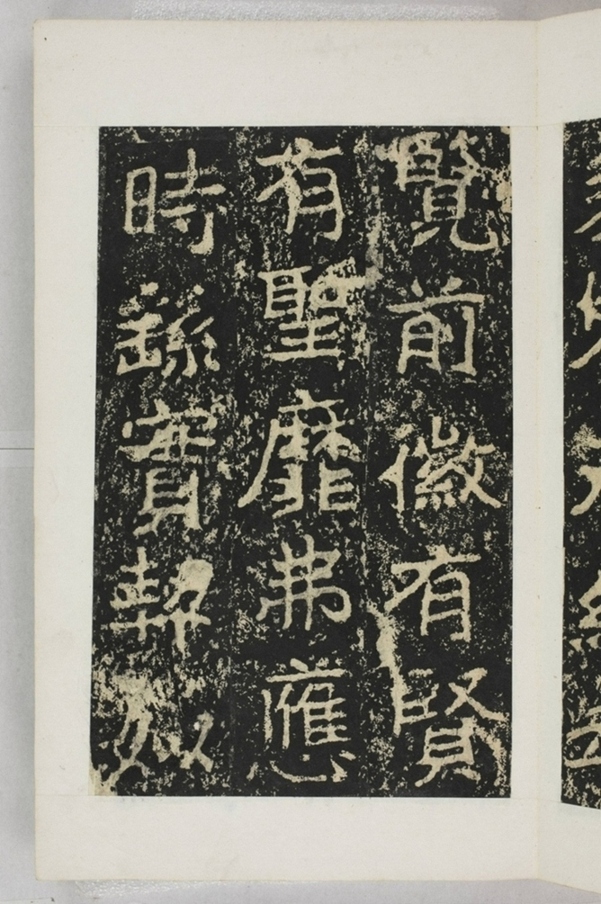 覽前徽有賢
有聖靡弗應
時繇實執姒